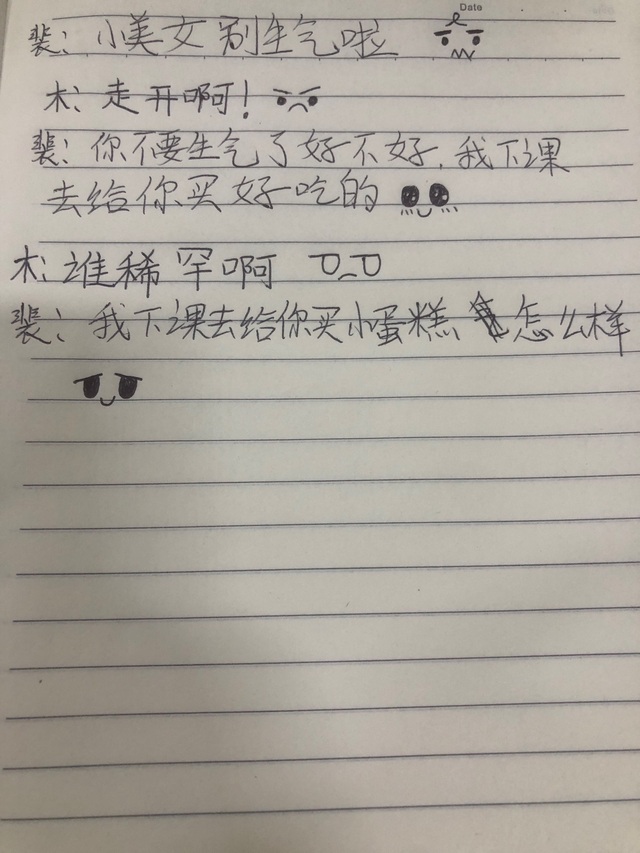 Date
裴：小美女别生气啦
木：走开啊！
裴：你不要生气了好不好，我下课
去给你买好吃的
木：谁稀罕啊
裴：我下课去给你买小蛋糕，怎么样